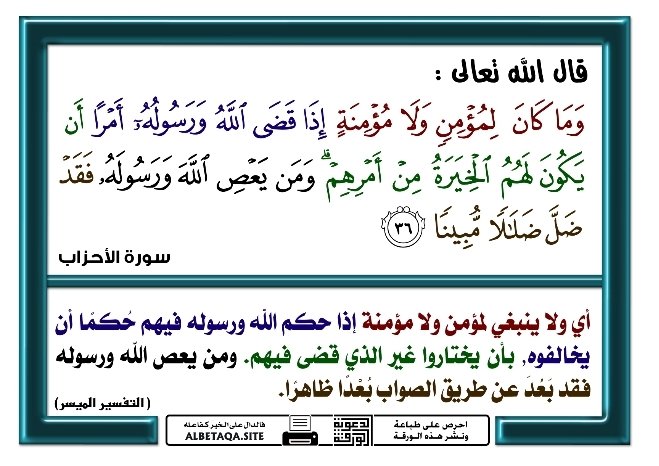 قال الله تعالى :
وَمَا كَانَ لِمُؤْمِنٍ وَلَا مُؤْمِنَةٍ إِذَا قَضَى ٱللَّهُ وَرَسُولُهُۥٓ أَمْرًا أَن
يَكُونَ لَهُمُ ٱلْخِيَرَةُ مِنْ أَمْرِهِمْ ۗ وَمَن يَعْصِ ٱللَّهَ وَرَسُولَهُۥ فَقَدْ
ضَلَّ ضَلَـٰلًا مُّبِينًا ٣٦
سورة الأحزاب
أي ولا ينبغي لمؤمن ولا مؤمنة إذا حكم الله ورسوله فيهم حُكمًا أن
يخالفوه, بأن يختاروا غير الذي قضى فيهم. ومن يعص الله ورسوله
فقد بَعُدَ عن طريق الصواب بُعْدًا ظاهرًا.
( التفسير الميسر)
احرص على طباعة
ونشر هذه الورقة
الدعوية
الورقية
فالدال على الخير كفاعله
ALBETAQA.SITE